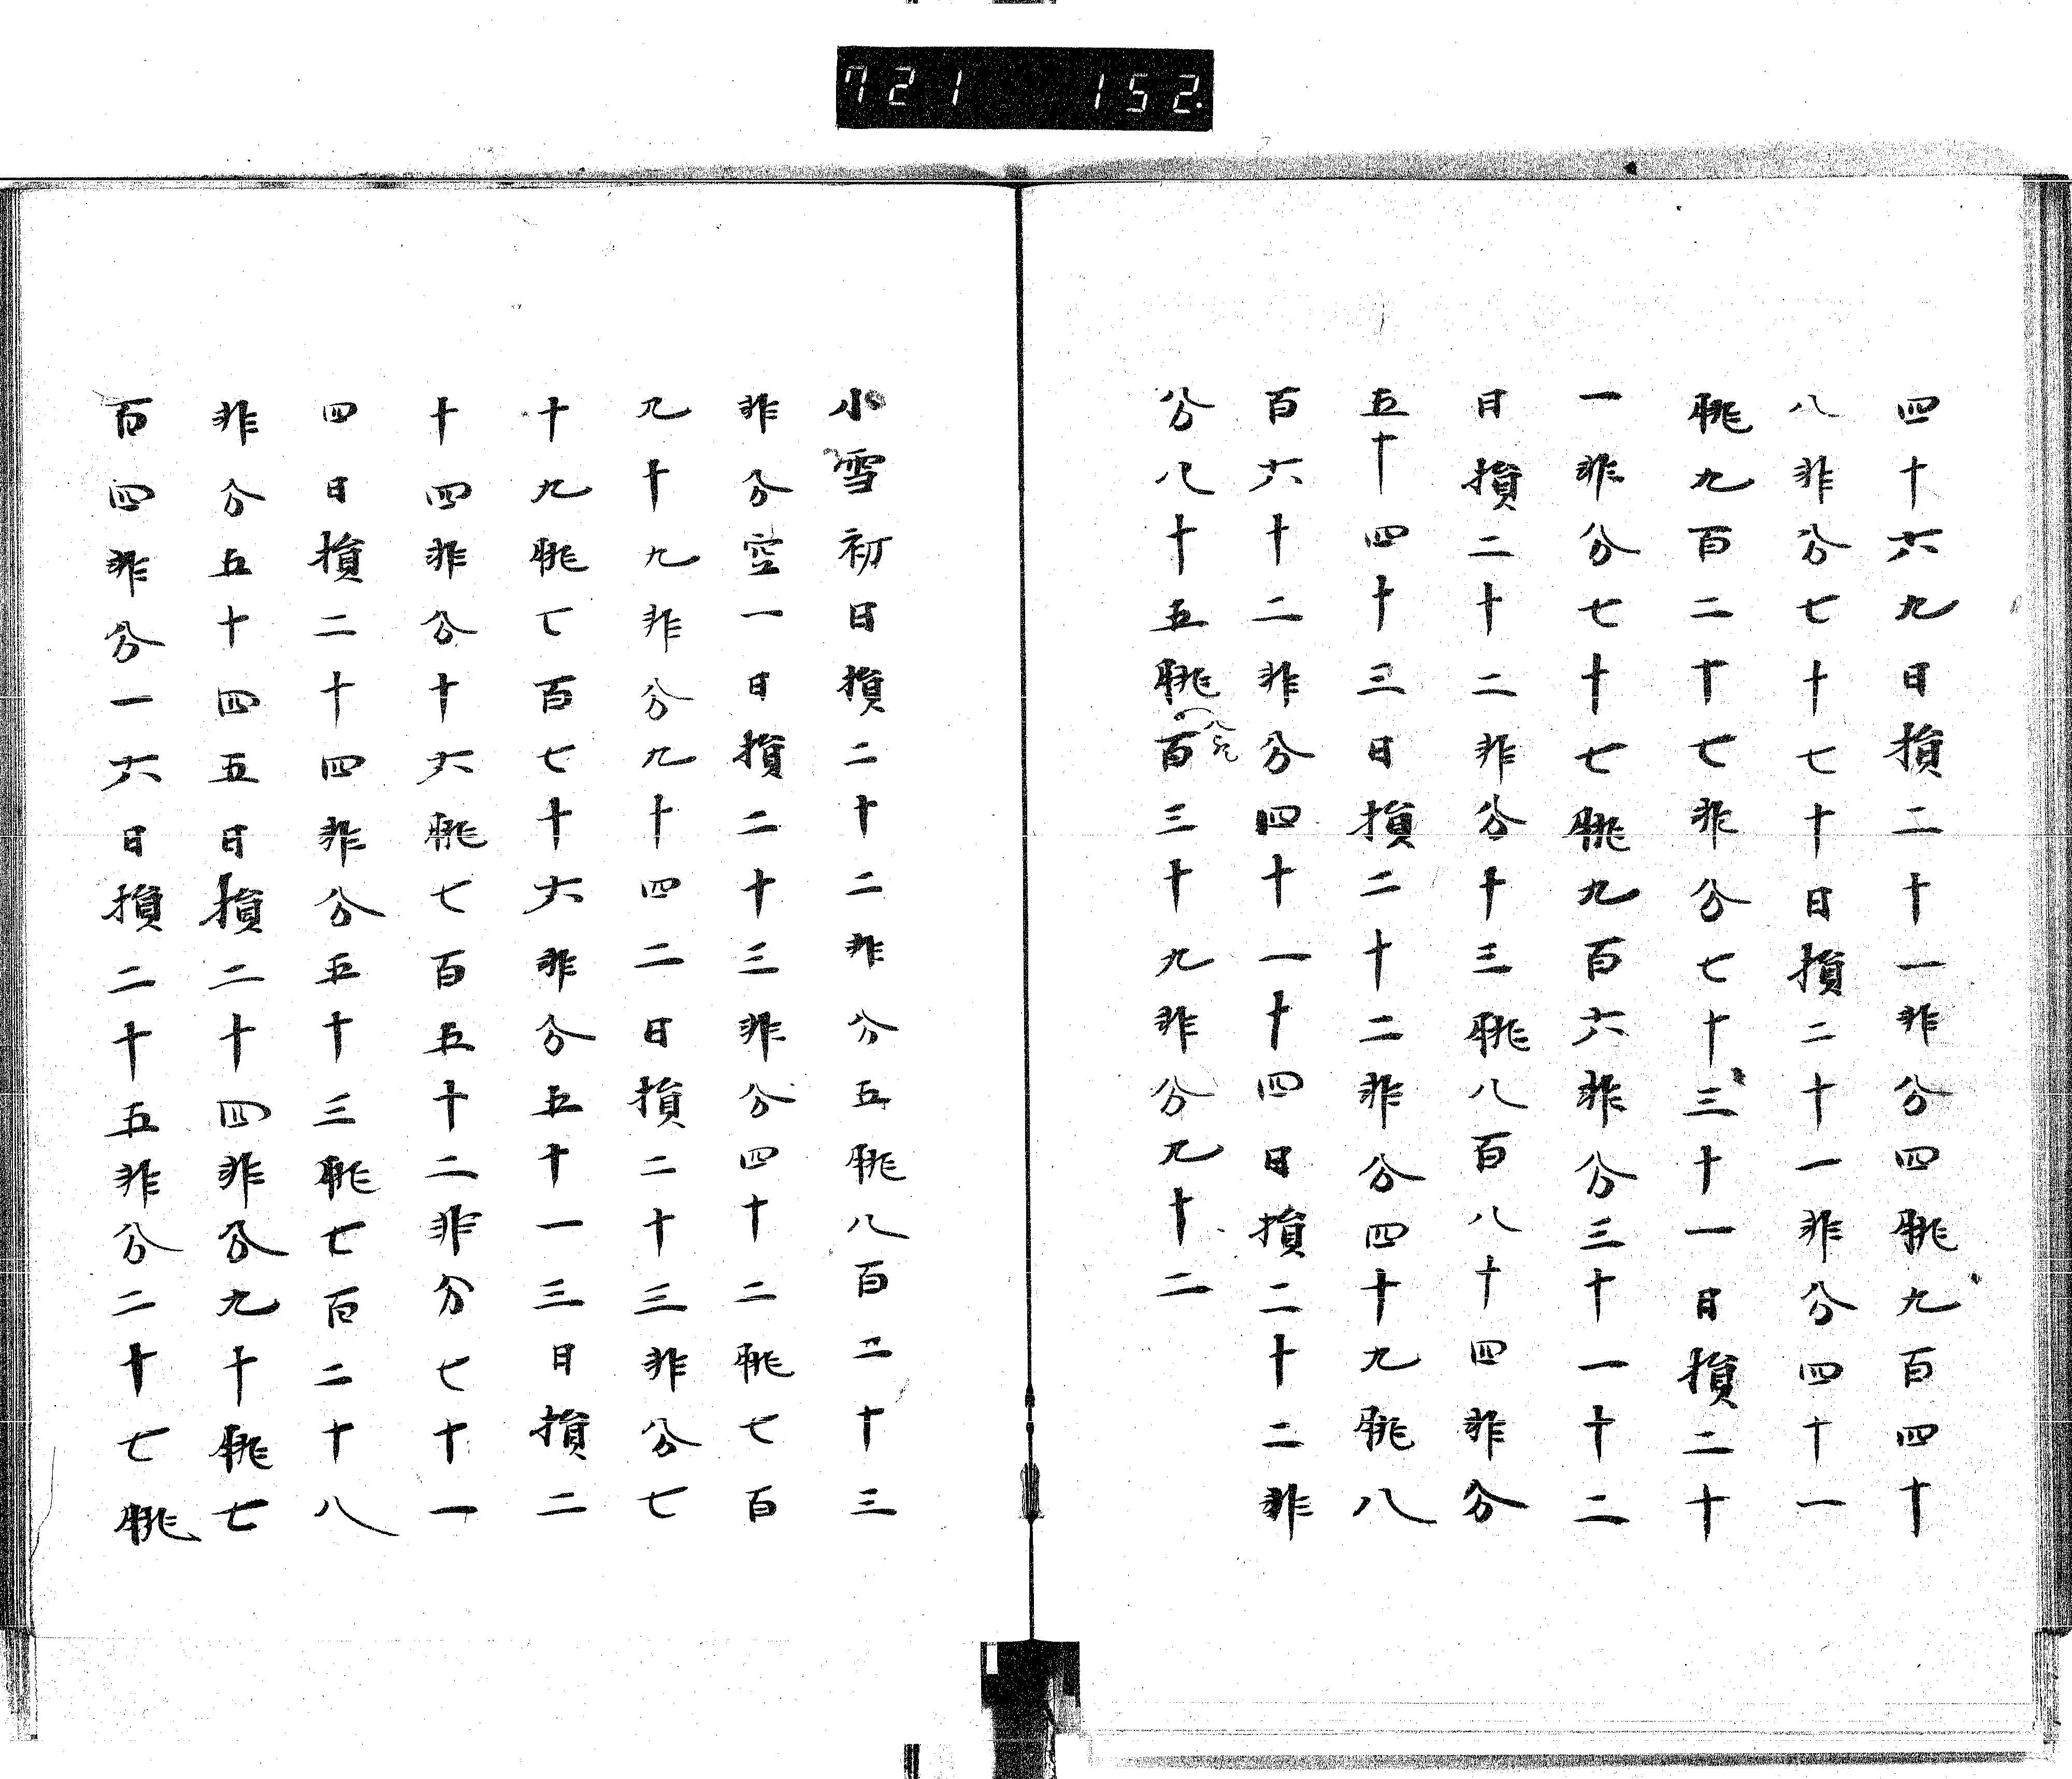 721 152.
四十六九日損二十一非分四朓九百四十
八非分七十七十日損二十一非分四十一
朓九百二十七非分七十三十一日損二十
一非分七十七朓九百六非分三十一十二
日損二十二非分十三朓八百八十四非分
五十四十三日損二十二非分四十九朓八
百六十二非分四十一十四日損二十二非
分八十五朓百三十九非分九十二
小雪初日損二十二非分五朓八百二十三
非分空一日損二十三非分四十二朓七百
九十九非分九十四二日損二十三非分七
十九朓七百七十六非分五十一三日損二
十四非分十六朓七百五十二非分七十一
四日損二十四非分五十三朓七百二十八
非分五十四五日損二十四非分九十朓七
百四非分一六日損二十五非分二十七朓